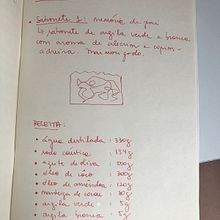 • Sabonete 1: memória de pai
↳ sabonete de argila verde e branca
com aroma de alecrim e capim-
RECEITA:
• água destilada : 330g
• soda cáustica : 134g
• azeite de oliva : 500g
• óleo de coco : 300g
• óleo de amêndoas : 120g
• manteiga de cacau : 80g
• argila verde : 5g
• argila branca : 5g